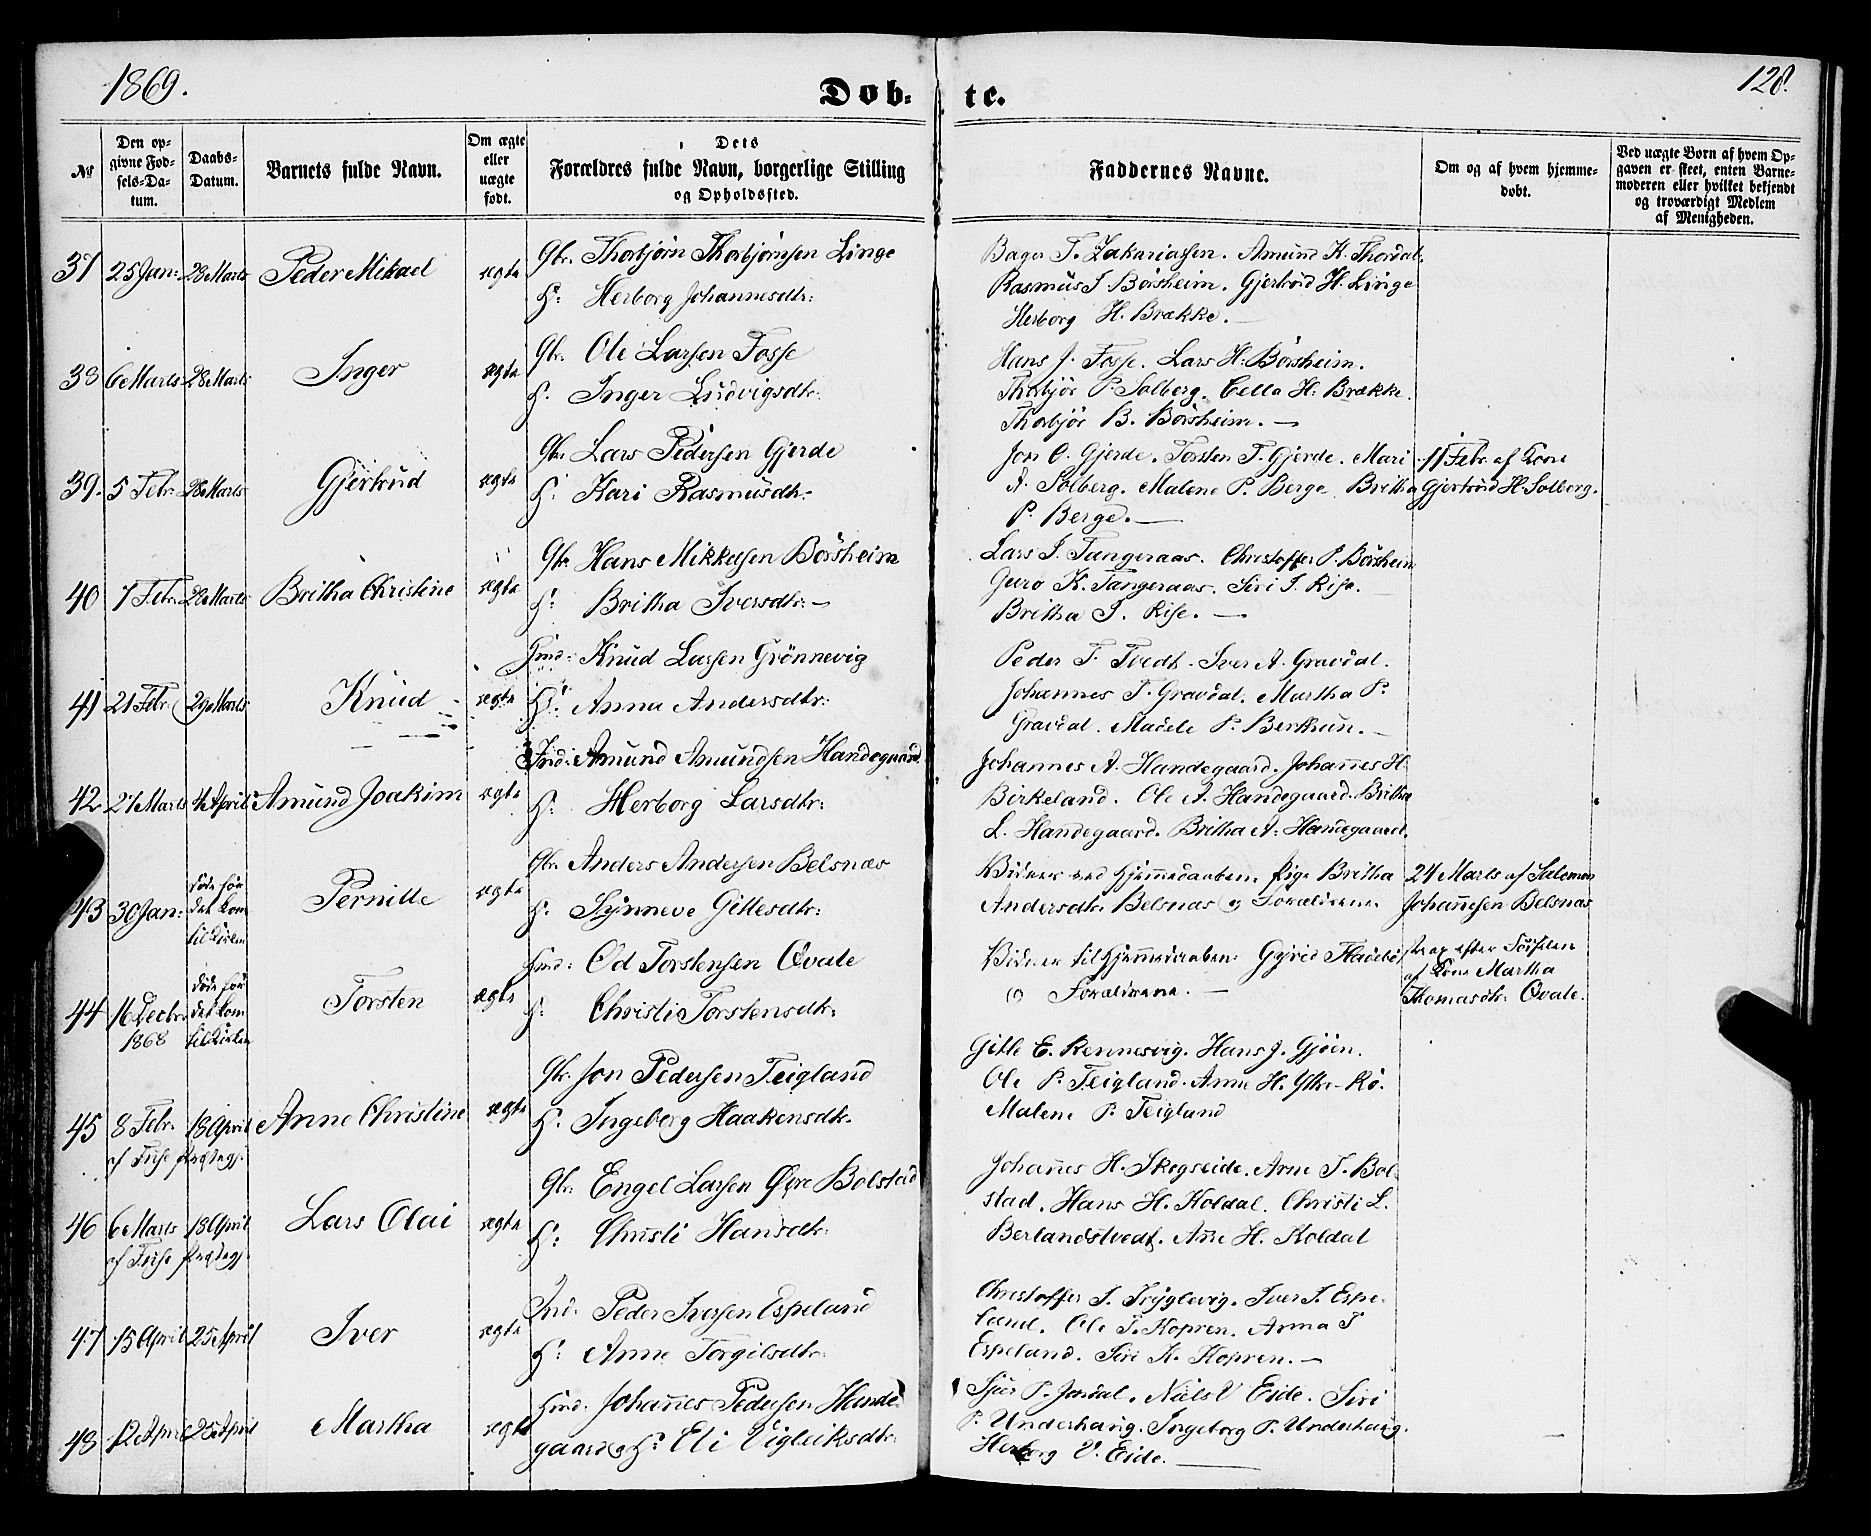 1869.
Døb-
te.
128.
№
Den op-
givne Fød-
sels-Da-
tum.
Daabs-
Datum.
Barnets fulde Navn.
Om ægte
eller
uægte
født.
Dets
Forældres fulde Navn, borgerlige Stilling
og Opholdssted.
Faddernes Navne.
Om og af hvem hjemme-
døbt.
Ved uægte Børn af hvem Op-
gaven er skeet, enten Barne-
moderen eller hvilket bekjendt
og troværdigt Medlem
af Menigheden.
37 25 Jan: 28 Marts Peder Mikael ægte
Gbr. Thorbjørn Thorbjørnsen Linge
H: Herborg Johannesdtr:
T. Zakariassen. Amund K. Thordal.
Rasmus I. Börsheim. Gjertrud H. Linge
Herborg H. Brække.
38 6 Marts 28 Marts Inger ægte
Gbr. Ole Larsen Fosse
H. Inger Ludvigsdtr.
Hans J. Fosse. Lars H. Börsheim.
Thorbjör P. Solberg. Cella H. Brække.
Thorbjör B. Börsheim.
39. 5 Febr. 28 Marts Gjertrud ægte
Gbr. Lars Pedersen Gjerde
H. Kari Rasmusdtr.
Jon O. Gjerde. Torsten T. Gjerde. Mari
A. Solberg. Malene P. Berge. Britha
P. Berge.
11 Febr. af Kone
Gjertrud H. Solberg.
40 7 Febr. 28 Marts Britha Christine ægte
Gbr. Hans Mikkelsen Börsheim
H: Britha Iversdtr.
Lars I. Tangeraas. Christoffer P. Börsheim
Guro K. Tangeraas. Siri I. Rise.
Britha I. Rise.
41 21 Febr. 29 Marts Knud ægte
Hmd: Knud Larsen Grönnevig
H: Anna Andersdtr.
Peder T. Tvedt. Iver A. Gravdal.
Johannes T. Gravdal. Martha P.
Gravdal. Madele P. Berthun.
42 27 Marts 4 April Amund Joakim ægte
Ind: Amund Amundsen Handegaard
H: Herborg Larsdtr:
Johannes A. Handegaard. Johannes H.
Birkeland. Ole A. Handegaard. Britha
L. Handegaard. Britha A. Handegaard.
43 30 Jan: døde för
det kom
til Kirken
Pernille ægte
Gbr. Anders Andersen Belsnæs
H. Synneve Gitlesdtr:
Vidner ved Hjemmedaaben, Pige Britha
Andersdtr. Belsnæs og Forældrene
24 Marts af Salemon
Johannesen Belsnæs
44 16 Decbr.
1868
døde för
det kom
til Kirken
Torsten ægte
Hmd: Od Torstensen Øvale
H: Christi Torstensdtr.
Vidner til Hjemmedaaben:
og Forældrene.
strax efter Födselen
af Kone Martha
Thomasdtr. Øvale.
45 8 Febr. 18 April Anne Christine ægte
af Fuse Præstegj.
Gbr. Jon Pedersen Teigland
H. Ingeborg Haakensdtr.
Gitle E. Rennesvig. Hans J. Gjöen.
Ole P. Teigland. Anne H. Ytre-Rö.
Malene P. Teigland
46 6 Marts 18 April Lars Olai ægte
af Fuse Præstegj.
Gbr. Engel Larsen Øvre Bolstad
H: Christi Hansdtr.
Johannes H. Skogseide. Arne T. Bol-
stad. Hans H. Koldal. Christi L.
Berlandstvedt. Anne H. Koldal
47 15 April 25 April Iver ægte
Ind. Peder Iversen Espeland
H: Anne Torgilsdtr.
Christoffer I. Tryglevig. Iver I. Espe-
land. Ole T. Kopren. Anna I
Espeland. Siri K. Kopren.
48 12 April 25 April Martha ægte
Hmd. Johannes Pedersen Hande-
gaard og H: Eli Vigleiksdtr.
Sjur P. Jordal. Niels V Eide. Siri
P. Underhaug. Ingeborg P. Underhaug.
Herborg V. Eide.